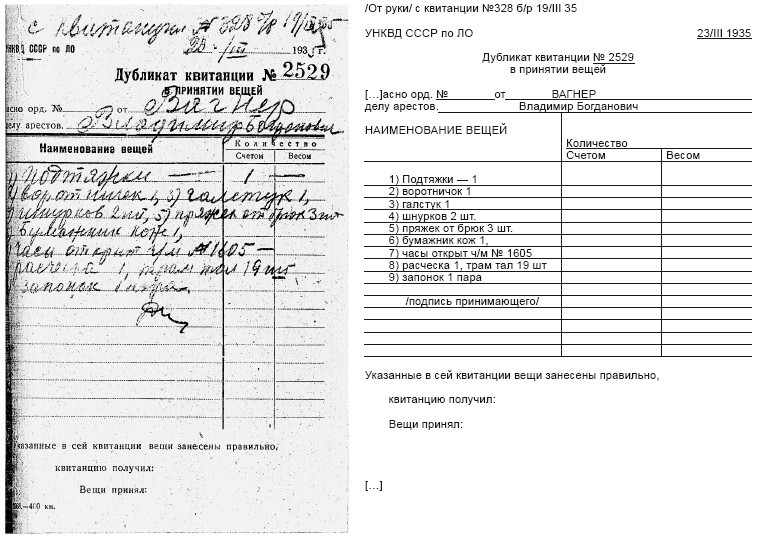 с квитанции № 328 б/р 19/III 35
УНКВД СССР по ЛО
23/III 1935 г.
Дубликат квитанции № 2529
в принятии вещей
асно орд. № от Вагнер
делу арестов. Владимир Богданович
Наименование вещей
Количество
Счетом Весом
1) Подтяжки — 1 —
воротничек 1, 3) галстук 1,
шнурков 2 шт, 5) пряжек от брюк 3 шт
бумажник кож 1,
часы открыт ч/м № 1605 —
расческа 1, трам тал 19 шт
запонок 1 пара.
Указанные в сей квитанции вещи занесены правильно,
квитанцию получил:
Вещи принял:
—400 кн.
/От руки/ с квитанции №328 б/р 19/III 35
УНКВД СССР по ЛО 23/III 1935
Дубликат квитанции № 2529
в принятии вещей
[...]асно орд. № от ВАГНЕР
делу арестов. Владимир Богданович
НАИМЕНОВАНИЕ ВЕЩЕЙ
Количество
Счетом Весом
1) Подтяжки — 1
2) воротничок 1
3) галстук 1
4) шнурков 2 шт.
5) пряжек от брюк 3 шт.
6) бумажник кож 1,
7) часы открыт ч/м № 1605
8) расческа 1, трам тал 19 шт
9) запонок 1 пара
/подпись принимающего/
Указанные в сей квитанции вещи занесены правильно,
квитанцию получил:
Вещи принял:
[...]